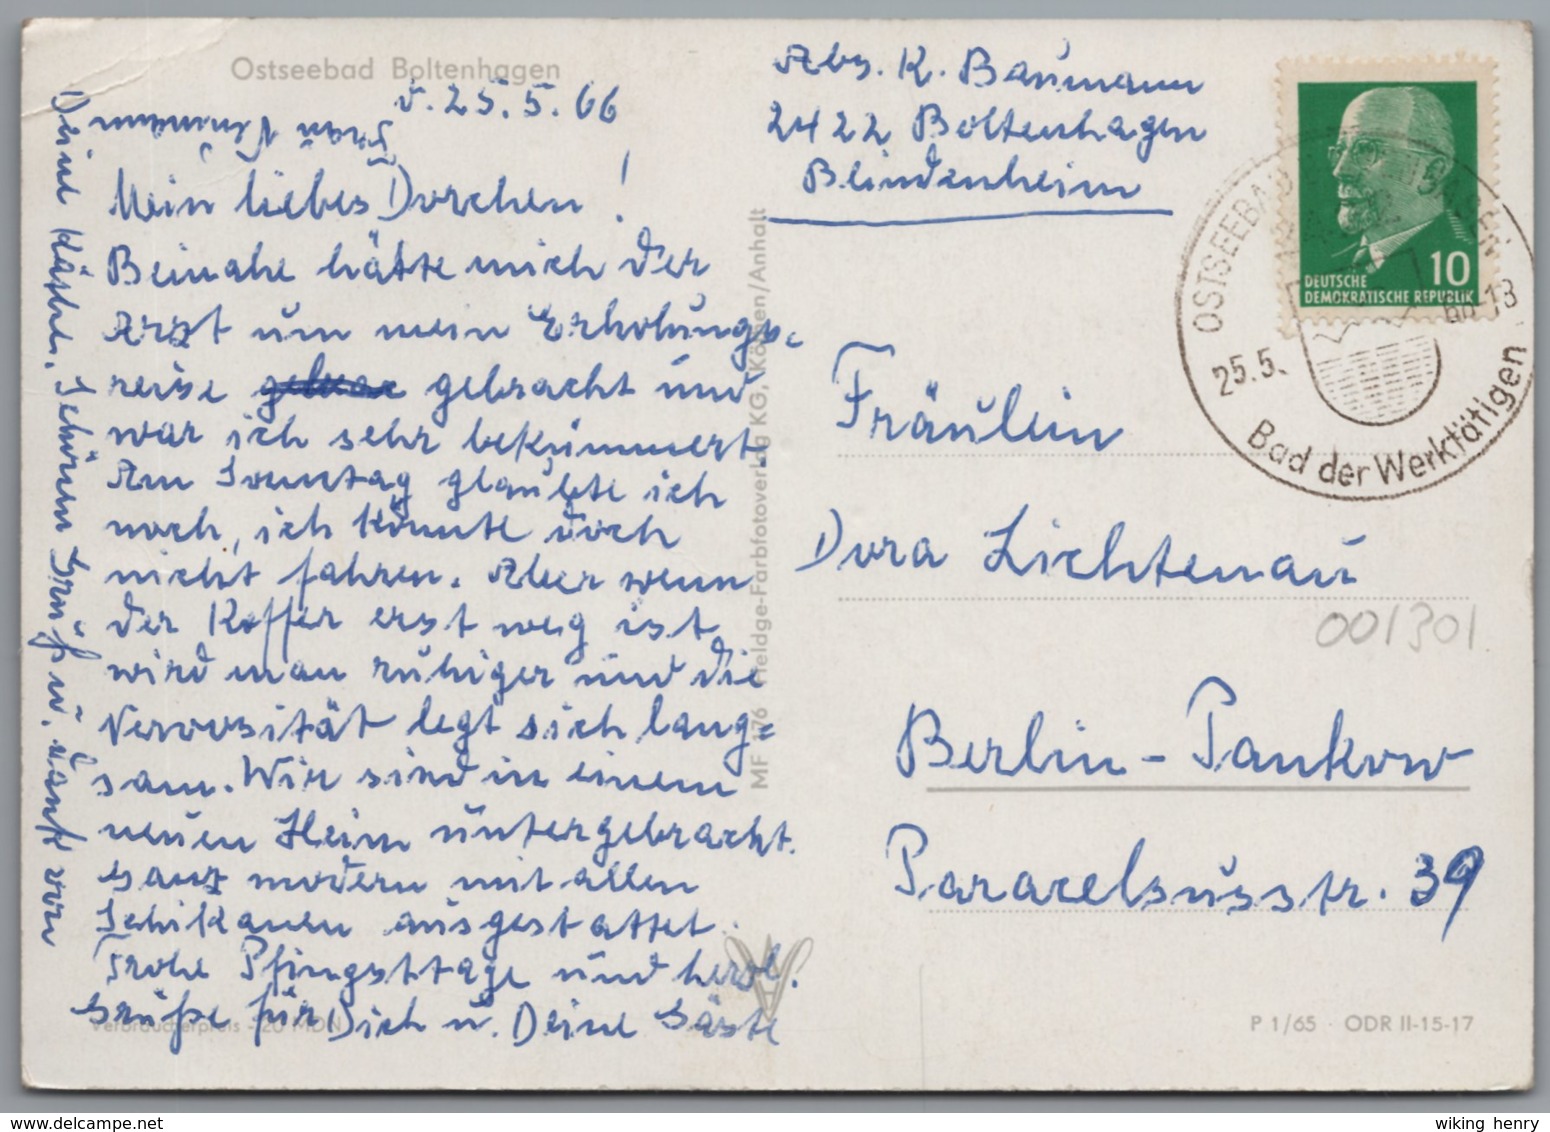 Ostseebad Boltenhagen
d. 25.5.66
Mein liebes Dorchen!
Beinahe hätte mich der
Arzt um mein Erholungs-
reise gebracht und
war ich sehr bekümmert.
Am Sonntag glaubte ich
noch, ich könnte doch
nicht fahren. Aber wenn
der Koffer erst weg ist
wird man ruhiger und die
Nervosität legt sich lang-
sam. Wir sind in einem
neuen Heim untergebracht.
Ganz modern mit allen
Schikanen ausgestattet.
Frohe Pfingsttage und herzl.
Grüße für Dich u. Deine Gäste
Deine Käthe. Schönen Gruß u. Dank von
Frau Neumann
Verbraucherpreis -20 MDN
MF 476 Heldge-Farbfotoverlag KG, Köthen/Anhalt
Abs. K. Baumann
2422 Boltenhagen
Blindenheim
DEUTSCHE
DEMOKRATISCHE REPUBLIK
10
OSTSEEBAD
25.5. 66-18
Bad der Werktätigen
Fräulein
Dora Lichtenau
001301
Berlin-Pankow
Paracelsusstr. 39
P 1/65 · ODR II-15-17
wiking henry